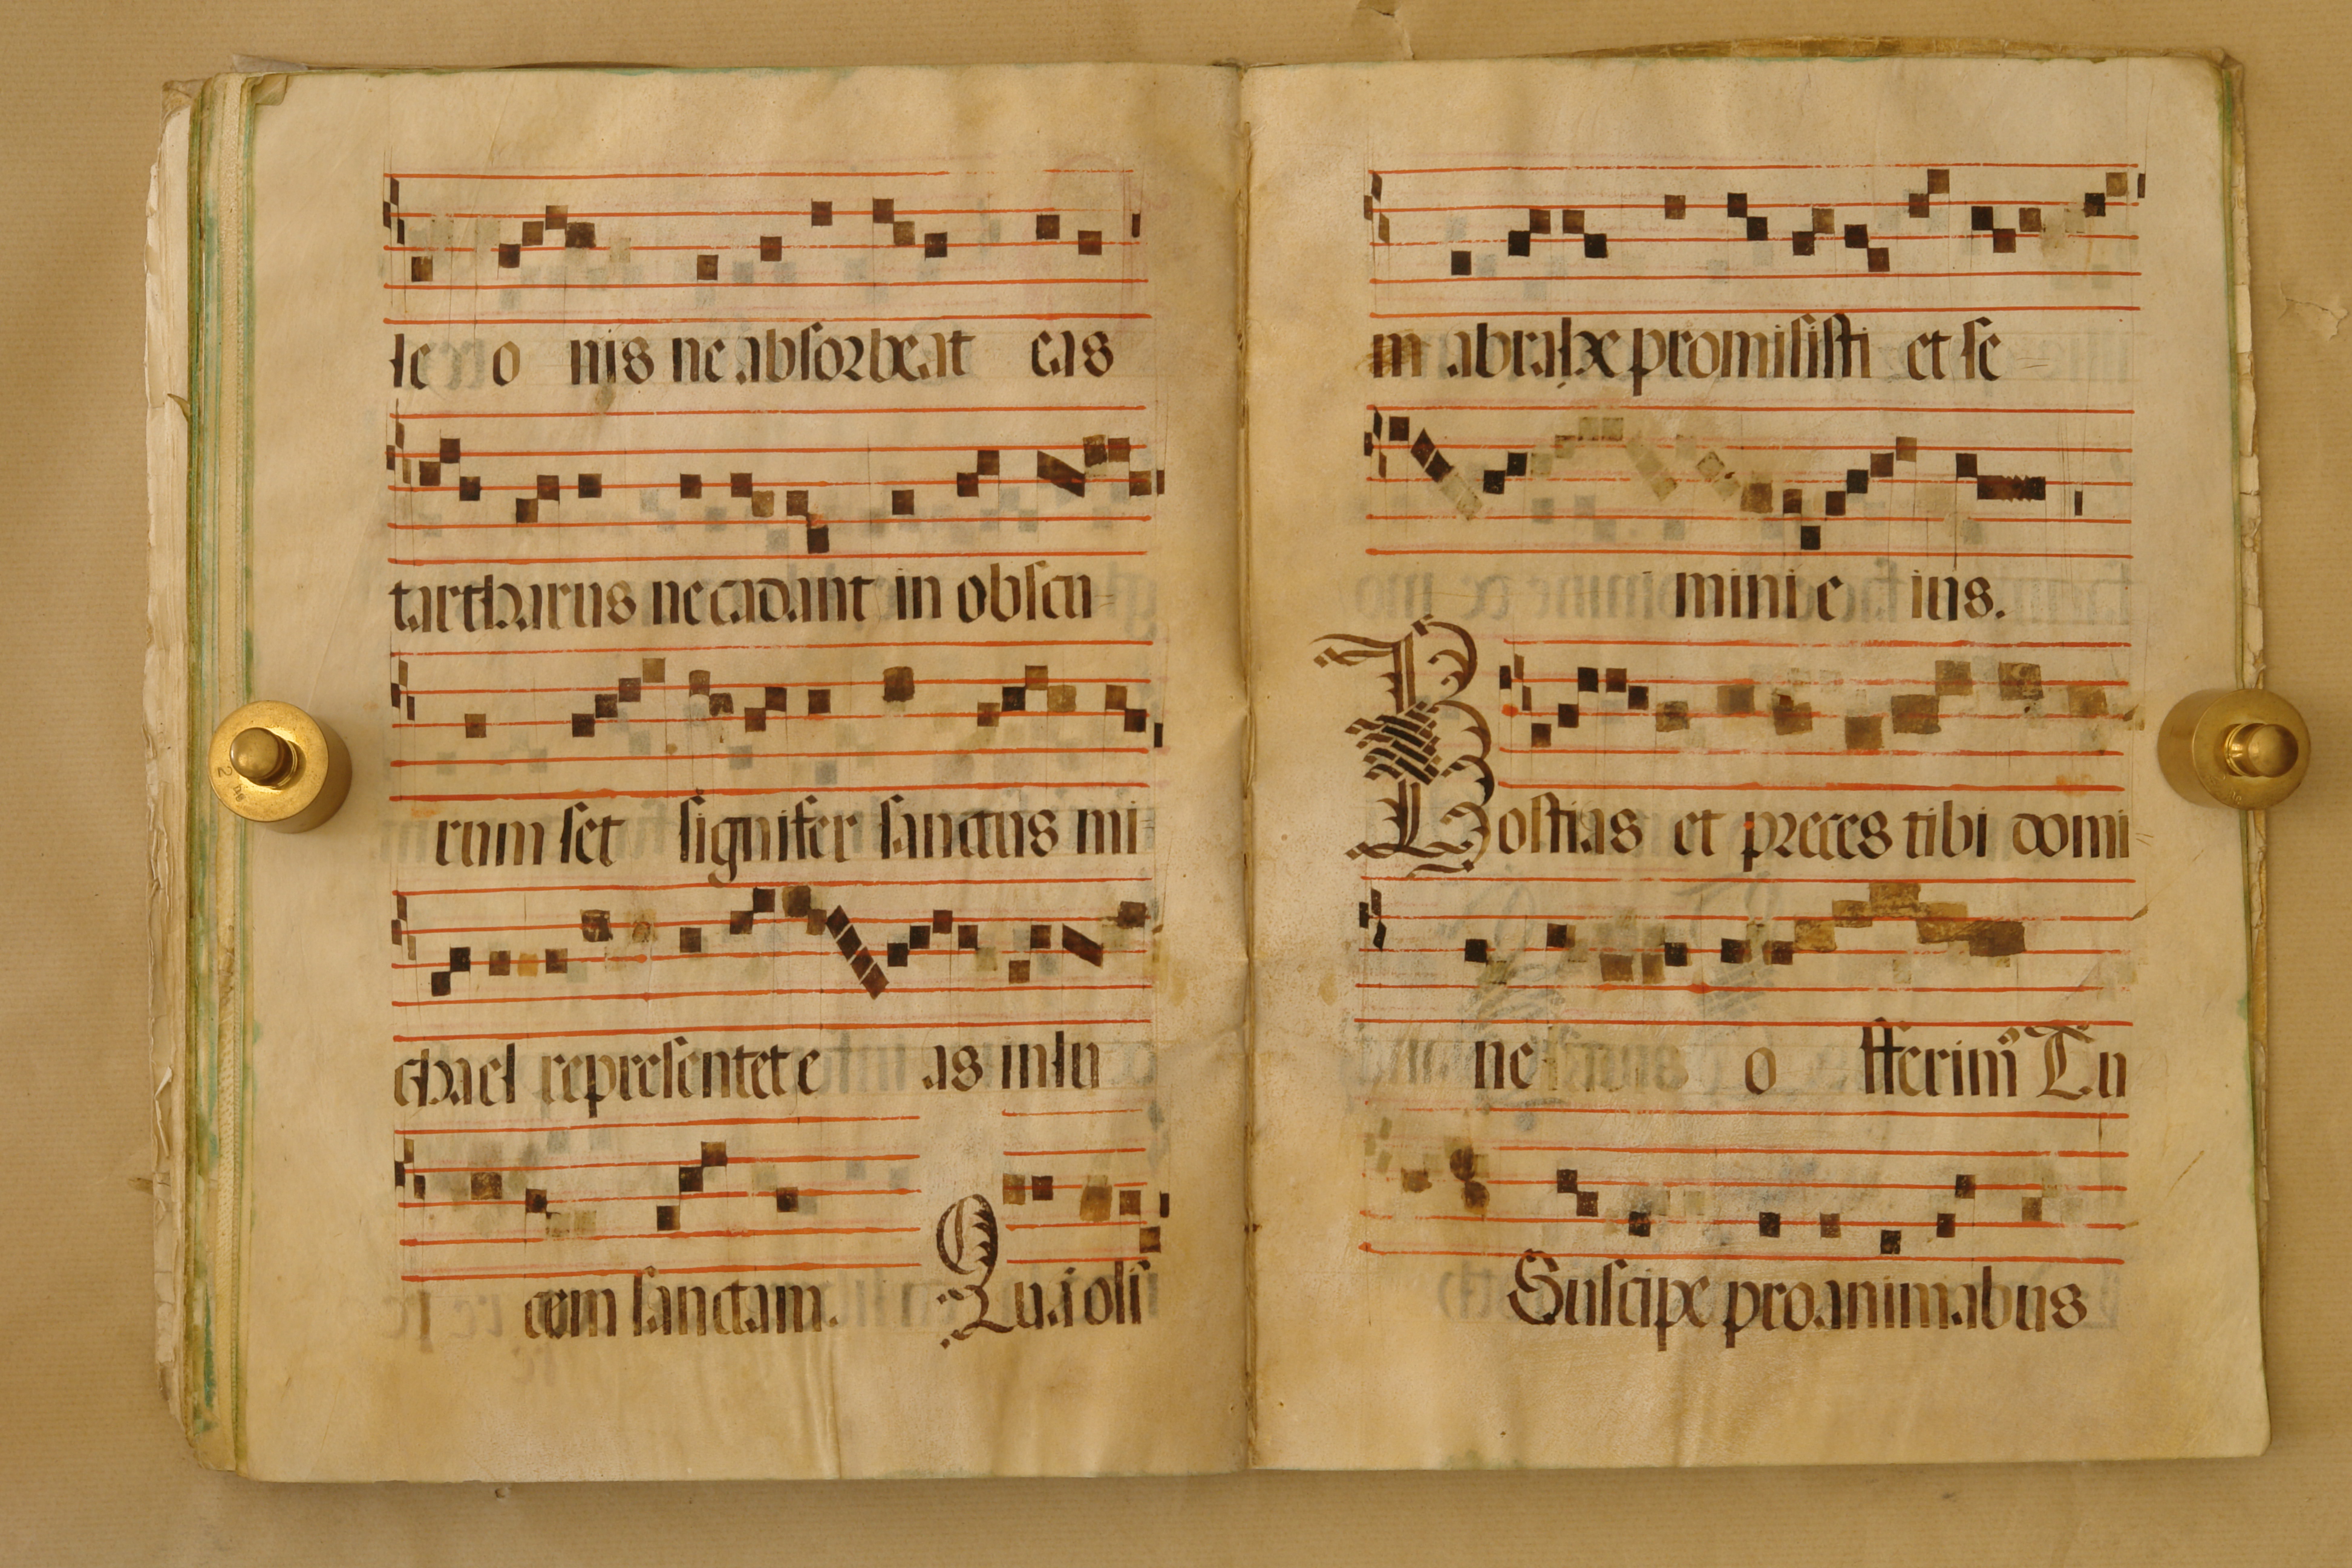 le o nis ne absorbeat eas
tartharus ne cadant in obscu
rum set signifer sanctus mi
chael representet e as in lu
cem sanctam. Quā olī
m abrahe promisisti et se
mini e ius.
Hostias et preces tibi domi
ne o fferim⁹ Tu
Suscipe pro animabus